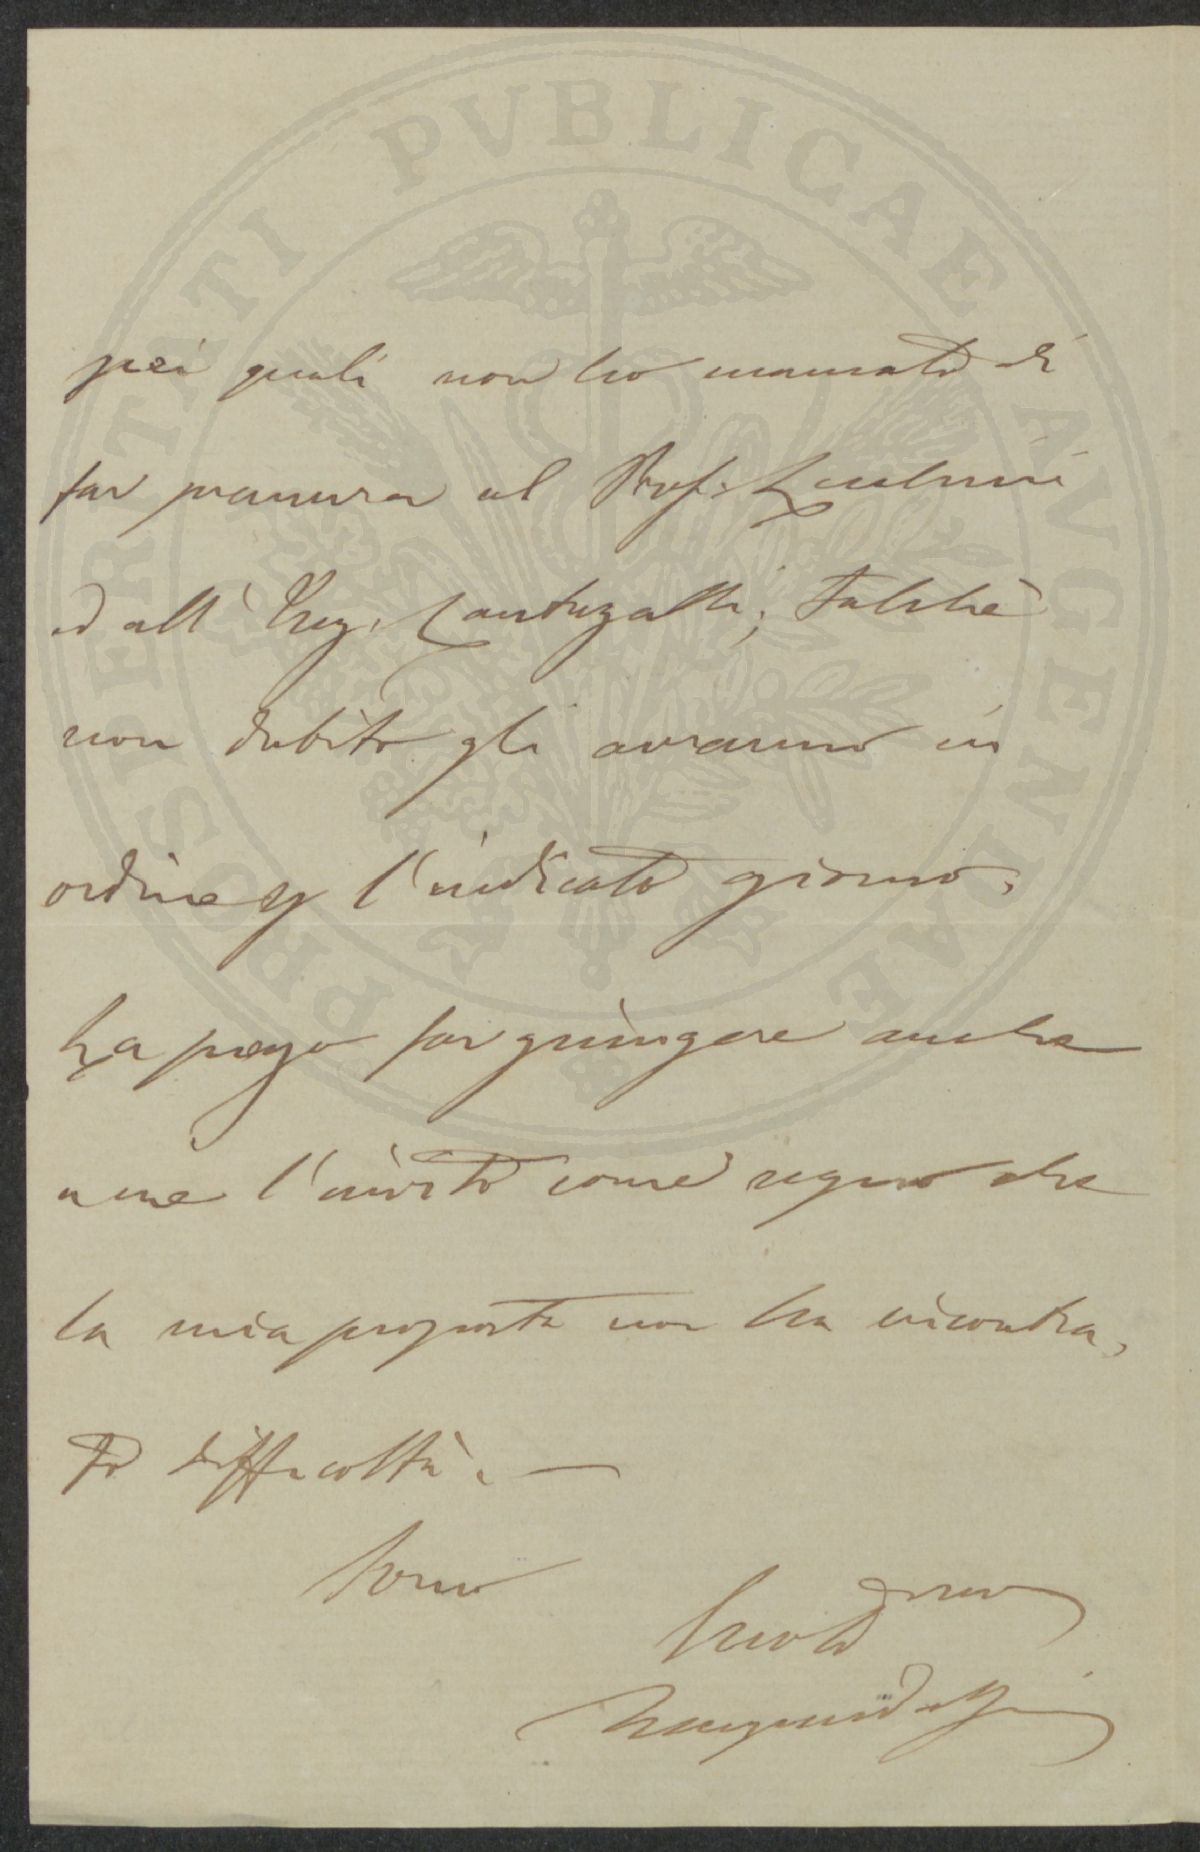 PROSPERITATI PVBLICAE AVGENDAE
pei quali non ho mancato di
far premura al Prof.
ed all'Ing. Cantuzalli; talchè
non dubito gli avranno in
ordine p l'indicato giorno.
La prego far giungere anche
a me l'invito come segno che
la mia proposta non ha incontra,
to difficoltà. —
Sono